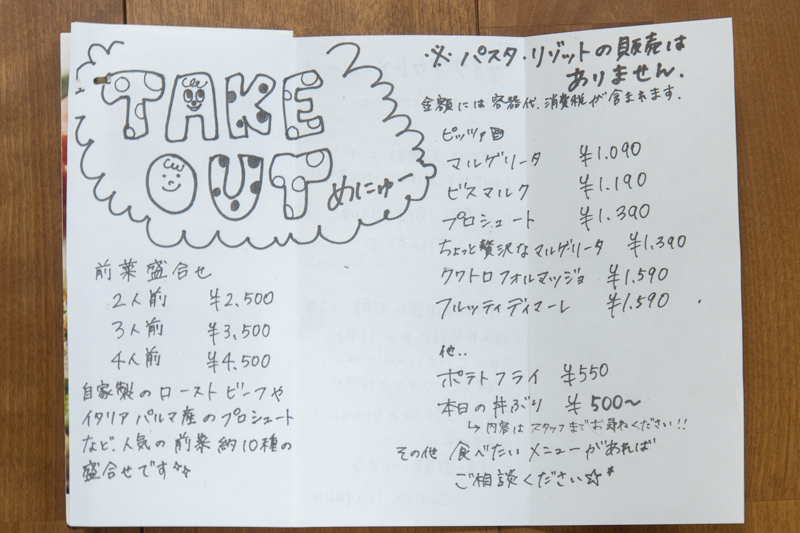 TAKE
OUT めにゅー
前菜盛合せ
2人前 ¥2,500
3人前 ¥3,500
4人前 ¥4,500
自家製のローストビーフや
イタリアパルマ産のプロシュート
など、人気の前菜約10種の
盛合せです
※パスタ・リゾットの販売は
ありません.
金額には容器代、消費税が含まれます.
ピッツァ
マルゲリータ ¥1.090
ビスマルク ¥1.190
プロシュート ¥1.390
ちょっと贅沢なマルゲリータ ¥1.390
クワトロフォルマッジョ ¥1.590
フルッティディマーレ ¥1.590
他..
ポテトフライ ¥550
本日の丼ぶり ¥500〜
↳内容はスタッフまでお尋ねください!!
その他 食べたいメニューがあれば
ご相談ください☆*